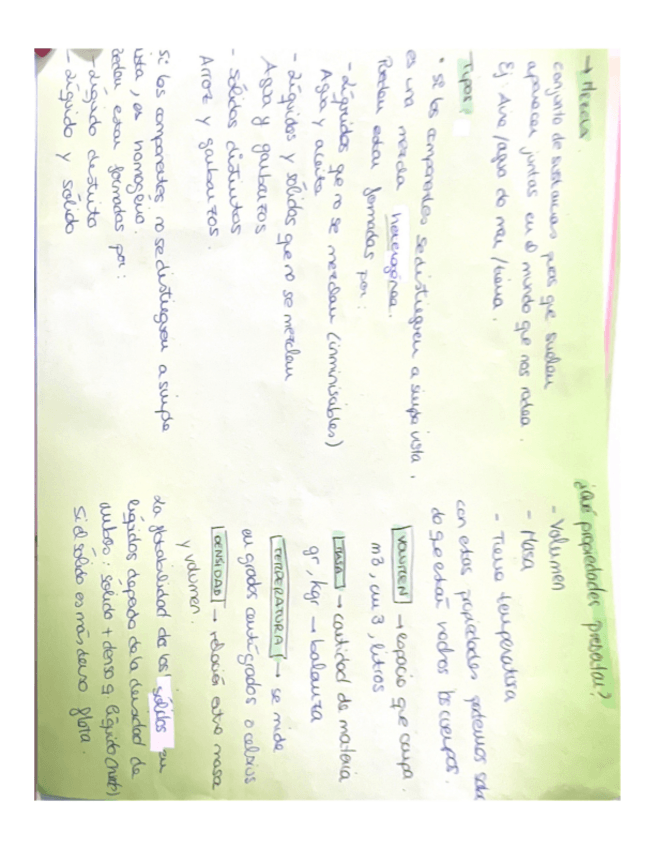 → Mezcla
conjunto de sustancias puras que suelen
aparecer juntas en el mundo que nos rodea.
Ej: Aire/agua de mar/tierra.
Tipos:
• si los componentes se distinguen a simple vista,
es una mezcla heterogénea.
Pueden estar formadas por:
- Líquidos que no se mezclan (inmiscibles)
Agua y aceite
- Líquidos y sólidos que no se mezclan
Agua y garbanzos
- Sólidos distintos
Arroz y garbanzos.
Si los componentes no se distinguen a simple
vista, es homogéneo.
formadas por:
- Líquido distinto
- Líquido y sólido
¿Qué propiedades presentan?
- Volumen
- Masa
- Tiene temperatura
con estas propiedades podemos saber
de que están hechos los cuerpos.
VOLUMEN → espacio que ocupa.
m3, cm3, litros
MASA → cantidad de materia
gr, kgr → balanza
TEMPERATURA → se mide
en grados centígrados o celsius
DENSIDAD → relación entre masa
y volumen.
La flotabilidad de los sólidos en
líquidos depende de la densidad de
ambos: sólido + denso q líquido (hunde)
Si el sólido es más denso flota.